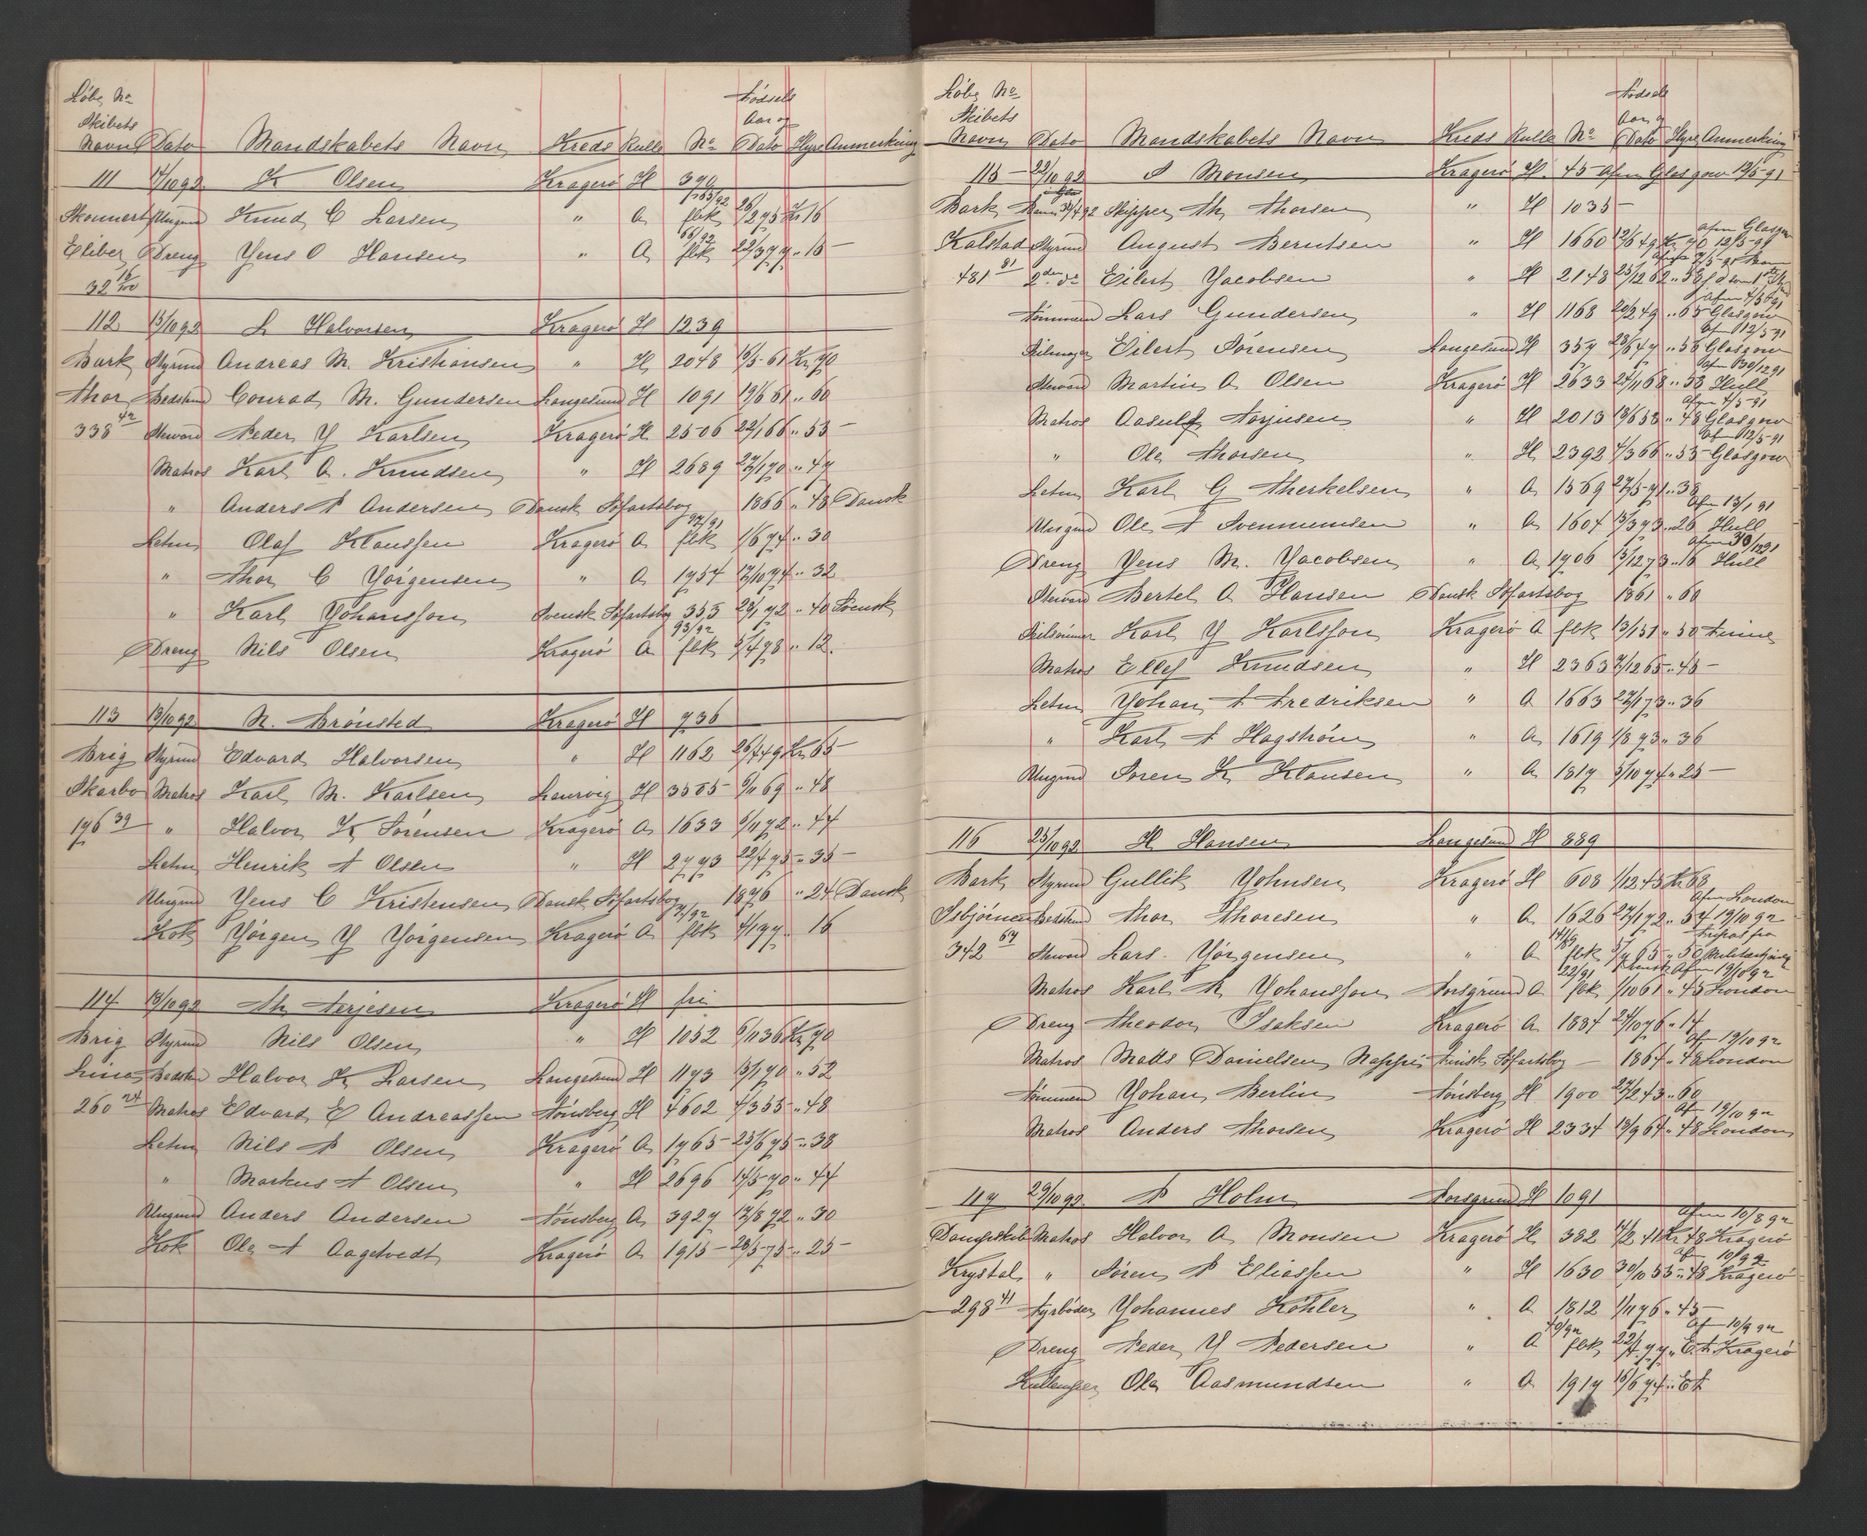 Löbe No
Skibets Födsels
Aar og
Navn Dato Mandskabets Navn Kreds Rulle No Dato Hyre Anmerkning
111 17/10 92 K Olsen Kragerö H 390
Skonnert Ungmd Knud C Larsen " A 165/92 fbk 26/2 75 Kr 16
Eliber Dreng Yens O Hansen " A 66/92 fbk 22/3 77 " 15
32 16/100
112 13/10 92 L Halvorsen Kragerö H 1239
Bark Styrmd Andreas M. Kristiansen " H 2048 16/5 61 Kr 70
Thor Bedstmd Conrad M. Gundersen Langesund H 1091 19/6 61 " 60
338 42 Steward Peder Y Karlsen Kragerö H 2506 22/1 66 " 55
Matros Karl A. Knudsen " H 2689 27/1 70 " 47
" Anders P Andersen Dansk Söfartsbog 1866 " 48 Dansk
Letm Olaf Klaussen Kragerö A 97/91 fbk 1/6 74 " 30
" Thor C Yörgensen " A 1954 12/10 74 " 32
" Karl Yohansson Svensk Söfartsbog 355 23/1 72 " 40 Svensk
Dreng Nils Olsen Kragerö A 93/92 fbk 5/4 78 " 12
113 13/10 92 N. Brönsted Kragerö H 736
Brig Styrmd Edvard Halvorsen " H 1162 26/4 49 Kr 65
Skarbo Matros Karl M. Karlsen Laurvig H 3585 5/11 69 " 48
176 39 " Halvor K Sörensen Kragerö A 1633 6/11 72 " 44
Letm Henrik A Olsen " H 2773 22/4 75 " 35
Ungmd Yens C Kristensen Dansk Söfartsbog 1876 " 24 Dansk
Kok Yörgen Y Yörgensen Kragerö A 7/92 fbk 4/1 77 " 16
114 13/10 92 Th Terjesen Kragerö H fri
Brig Styrmd Nils Olsen " H 1052 6/11 36 Kr 70
Lina Bedstmd Halvor K Larsen Langesund H 1173 13/1 70 " 52
260 24 Matros Edvard E Andreassen Tönsberg H 4602 4/3 55 " 48
Letm Nils P Olsen Kragerö A 1765 25/6 75 " 38
" Markus A Olsen " H 2696 14/5 70 " 44
Ungmd Anders Andersen Tönsberg A 3927 12/8 72 " 30
Kok Ole A Aagetvedt Kragerö A 1915 28/5 75 " 25
Löbe No
Skibets Födsels
Aar og
Navn Dato Mandskabets Navn Kreds Rulle No Dato Hyre Anmerkning
115 22/10 92 P Monsen Kragerö H 45 Afm Glasgow 12/5 91
Bark 30/4 92 Skipper Th Thorsen " H 1035
Kalstad Styrmd August Berntsen " H 1660 12/6 49 Kr 70 Afm Glasgow 12/5 91
481 81 2den do Eilert Yacobsen " H 2148 25/12 62 " 58
Tömmermd Lars Gundersen " H 1168 20/2 49 " 65 Glasgow
Seilmager Eilert Sörensen Langesund H 357 28/6 47 " 58 Afm 12/5 91 Glasgow
Steward Martin A Olsen Kragerö H 2633 24/11 68 " 58 Afm 30/12 91 Hull
Matros Aasulf Terjesen " H 2013 18/6 53 " 48 Afm 4/5 91 Glasgow
" Ole Thorsen " H 2392 4/3 66 " 55 Afm 12/5 91 Glasgow
Letm Karl G Therkelsen " A 1569 27/5 71 " 38
Ungmd Ole A Svennumsen " A 1604 13/3 73 " 26 Afm 13/1 91 Hull
Dreng Yens M. Yacobsen " A 1706 3/12 73 " 16 Afm 30/12 91 Hull
Steward Bertel A Hansen Dansk Söfartsbog 1861 " 60
Karl Y Karlsson Kragerö A fbk 13/1 51 " 50
Matros Ellef Knudsen " H 2363 7/12 65 " 45
Letm Yohan A Fredriksen " A 1663 22/1 73 " 36
" Karl A Hagström " A 1619 1/8 73 " 36
Ungmd Sören K Klausen " A 1817 5/10 74 " 25
116 25/10 92 H Hansen Langesund H 889
Bark Styrmd Gullik Yohnsen Kragerö H 608 1/12 45 Kr 68
Isbjörnen Bedstmd Thor Thoresen " A 1626 27/1 72 " 54 Afm London 19/10 92
342 67 Steward Lars Yörgensen " A 141/89 fbk 5/4 65 " 50 Fripas fra Militærtjen
Matros Karl M Yohansson Porsgrund A 22/91 fbk 1/10 61 " 45 Afm 19/8 92 London
Dreng Theodor Isaksen Kragerö A 1884 24/10 76 " 14
Matros Matts Danielsen Nappis Finsk Söfartsbog 1864 " 48 Afm 19/10 92 London
Tömmermd Yohan Berlin Tönsberg H 1900 27/2 43 " 60
Matros Anders Thorsen Kragerö H 2334 13/9 64 " 48 Afm 19/10 92 London
117 29/10 92 P Holm Porsgrund H 1091
Dampskib Matros Halvor A Monsen Kragerö H 382 14/2 41 Kr 48 Afm 10/8 92 Kragerö
Krystal " Sören P Eliassen " H 1630 30/10 55 " 48 Afm 10/9 92 Kragerö
298 41 Fyrböder Yohannes Köhler " A 1812 1/11 76 " 45
Dreng Peder Y Pedersen " A 40/92 fbk 22/4 77 " E.A. Afm 10/9 92 Kragerö
Kullemper Ole Aasmundsen " A 1917 16/6 74 " E A